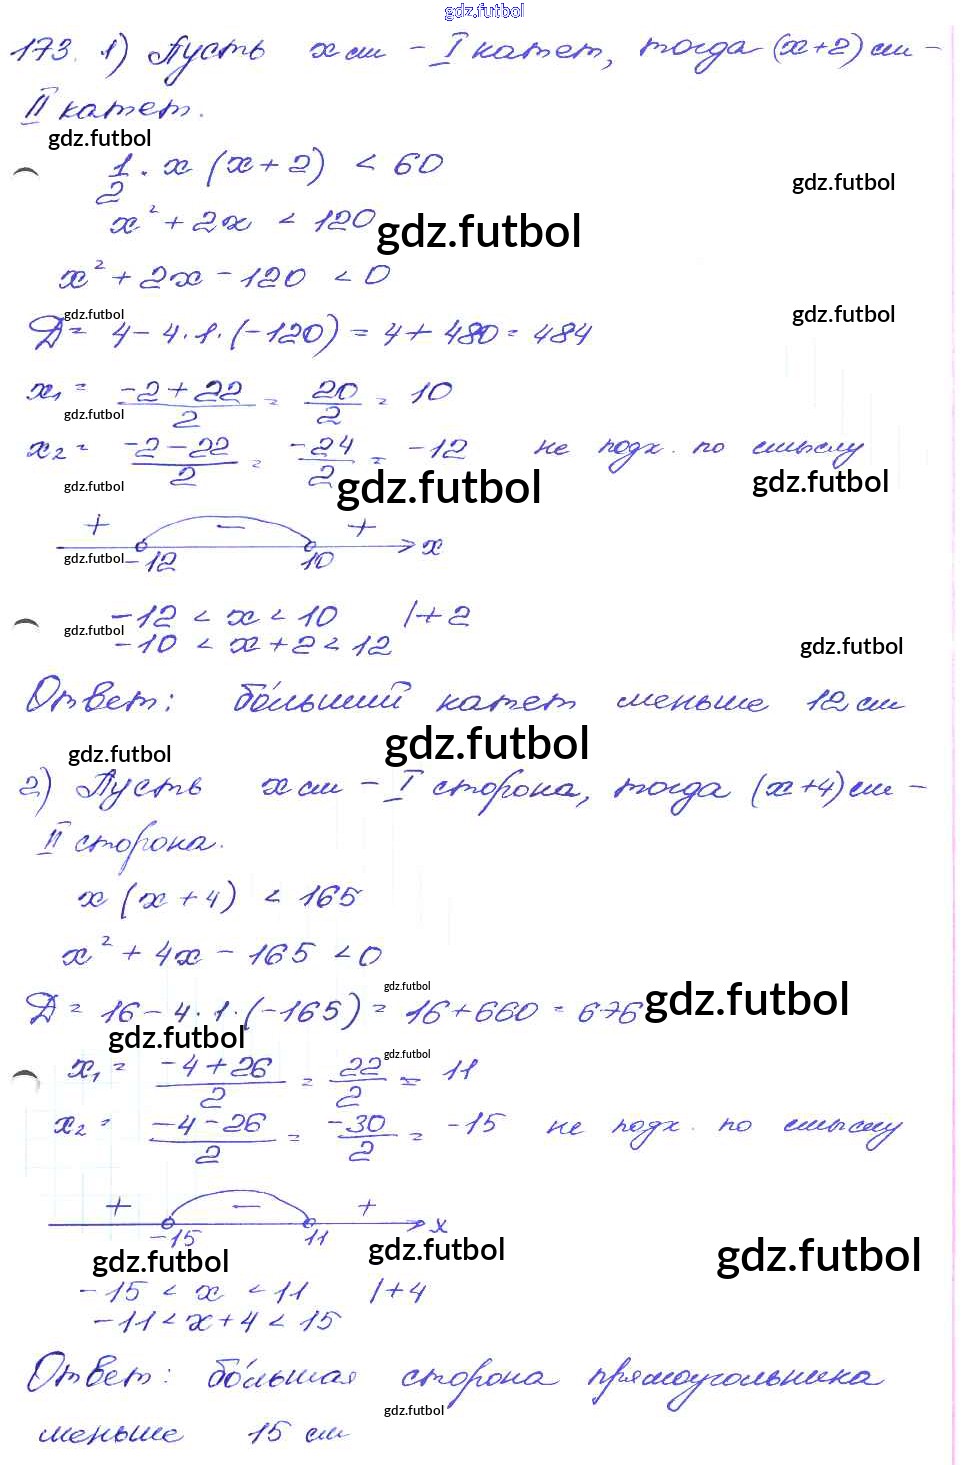 gdz.futbol
173. 1) Пусть x см - I катет, тогда (x+2) см -
II катет.
gdz.futbol
1/2 · x (x+2) < 60
gdz.futbol
x² + 2x < 120
gdz.futbol
x² + 2x - 120 < 0
gdz.futbol
gdz.futbol
Д = 4 - 4·1·(-120) = 4 + 480 = 484
x₁ = (-2+22)/2 = 20/2 = 10
gdz.futbol
x₂ = (-2-22)/2 = -24/2 = -12 не подх. по смыслу
gdz.futbol
gdz.futbol
gdz.futbol
+ - +
-12 10 x
gdz.futbol
-12 < x < 10 |+2
gdz.futbol
-10 < x+2 < 12
gdz.futbol
Ответ: бо́льший катет меньше 12 см
gdz.futbol
gdz.futbol
2) Пусть x см - I сторона, тогда (x+4) см -
II сторона.
x (x+4) < 165
x² + 4x - 165 < 0
gdz.futbol
gdz.futbol
Д = 16 - 4·1·(-165) = 16+660 = 676
gdz.futbol
gdz.futbol
x₁ = (-4+26)/2 = 22/2 = 11
x₂ = (-4-26)/2 = -30/2 = -15 не подх. по смыслу
+ - +
-15 11 x
gdz.futbol
gdz.futbol
gdz.futbol
-15 < x < 11 |+4
-11 < x+4 < 15
Ответ: бо́льшая сторона прямоугольника
gdz.futbol
меньше 15 см